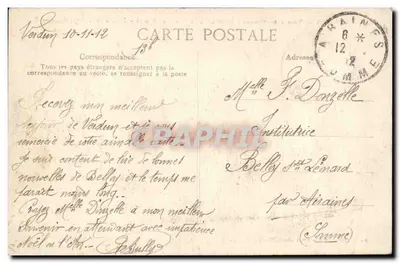 Verdun 10-11-12
CARTE POSTALE
Correspondance
Tous les pays étrangers n'acceptent pas la
correspondance au recto, se renseigner à la poste
Adresse
AIRAINES
6 *
12
12
SOMME
Recevez mon meilleur
souvenir de Verdun et je vous
remercie de votre aimable carte
Je suis content de lire de bonnes
nouvelles de Belloy et le temps me
paraît moins long.
Croyez Melle Donzelle à mon meilleur
souvenir en attendant avec impatience
Noël ou l'An.
Melle F. Donzelle
Institutrice
Belloy St Léonard
par Airaines
(Somme)
CPARAMA